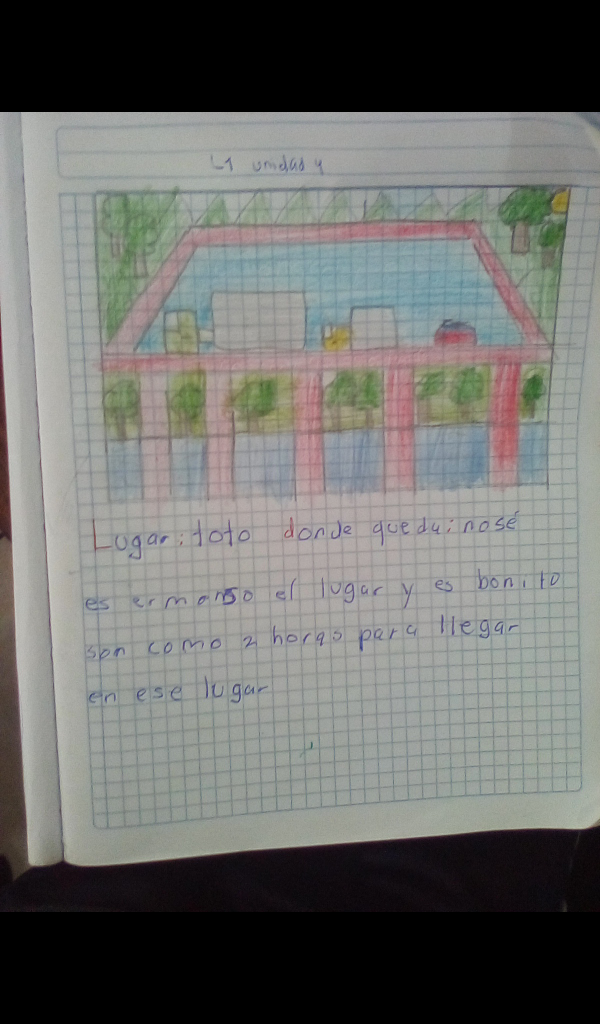 L1 unidad 4
Lugar: toto donde queda: nosé
es ermonso el lugar y es bonito
son como 2 horas para llegar
en ese lugar